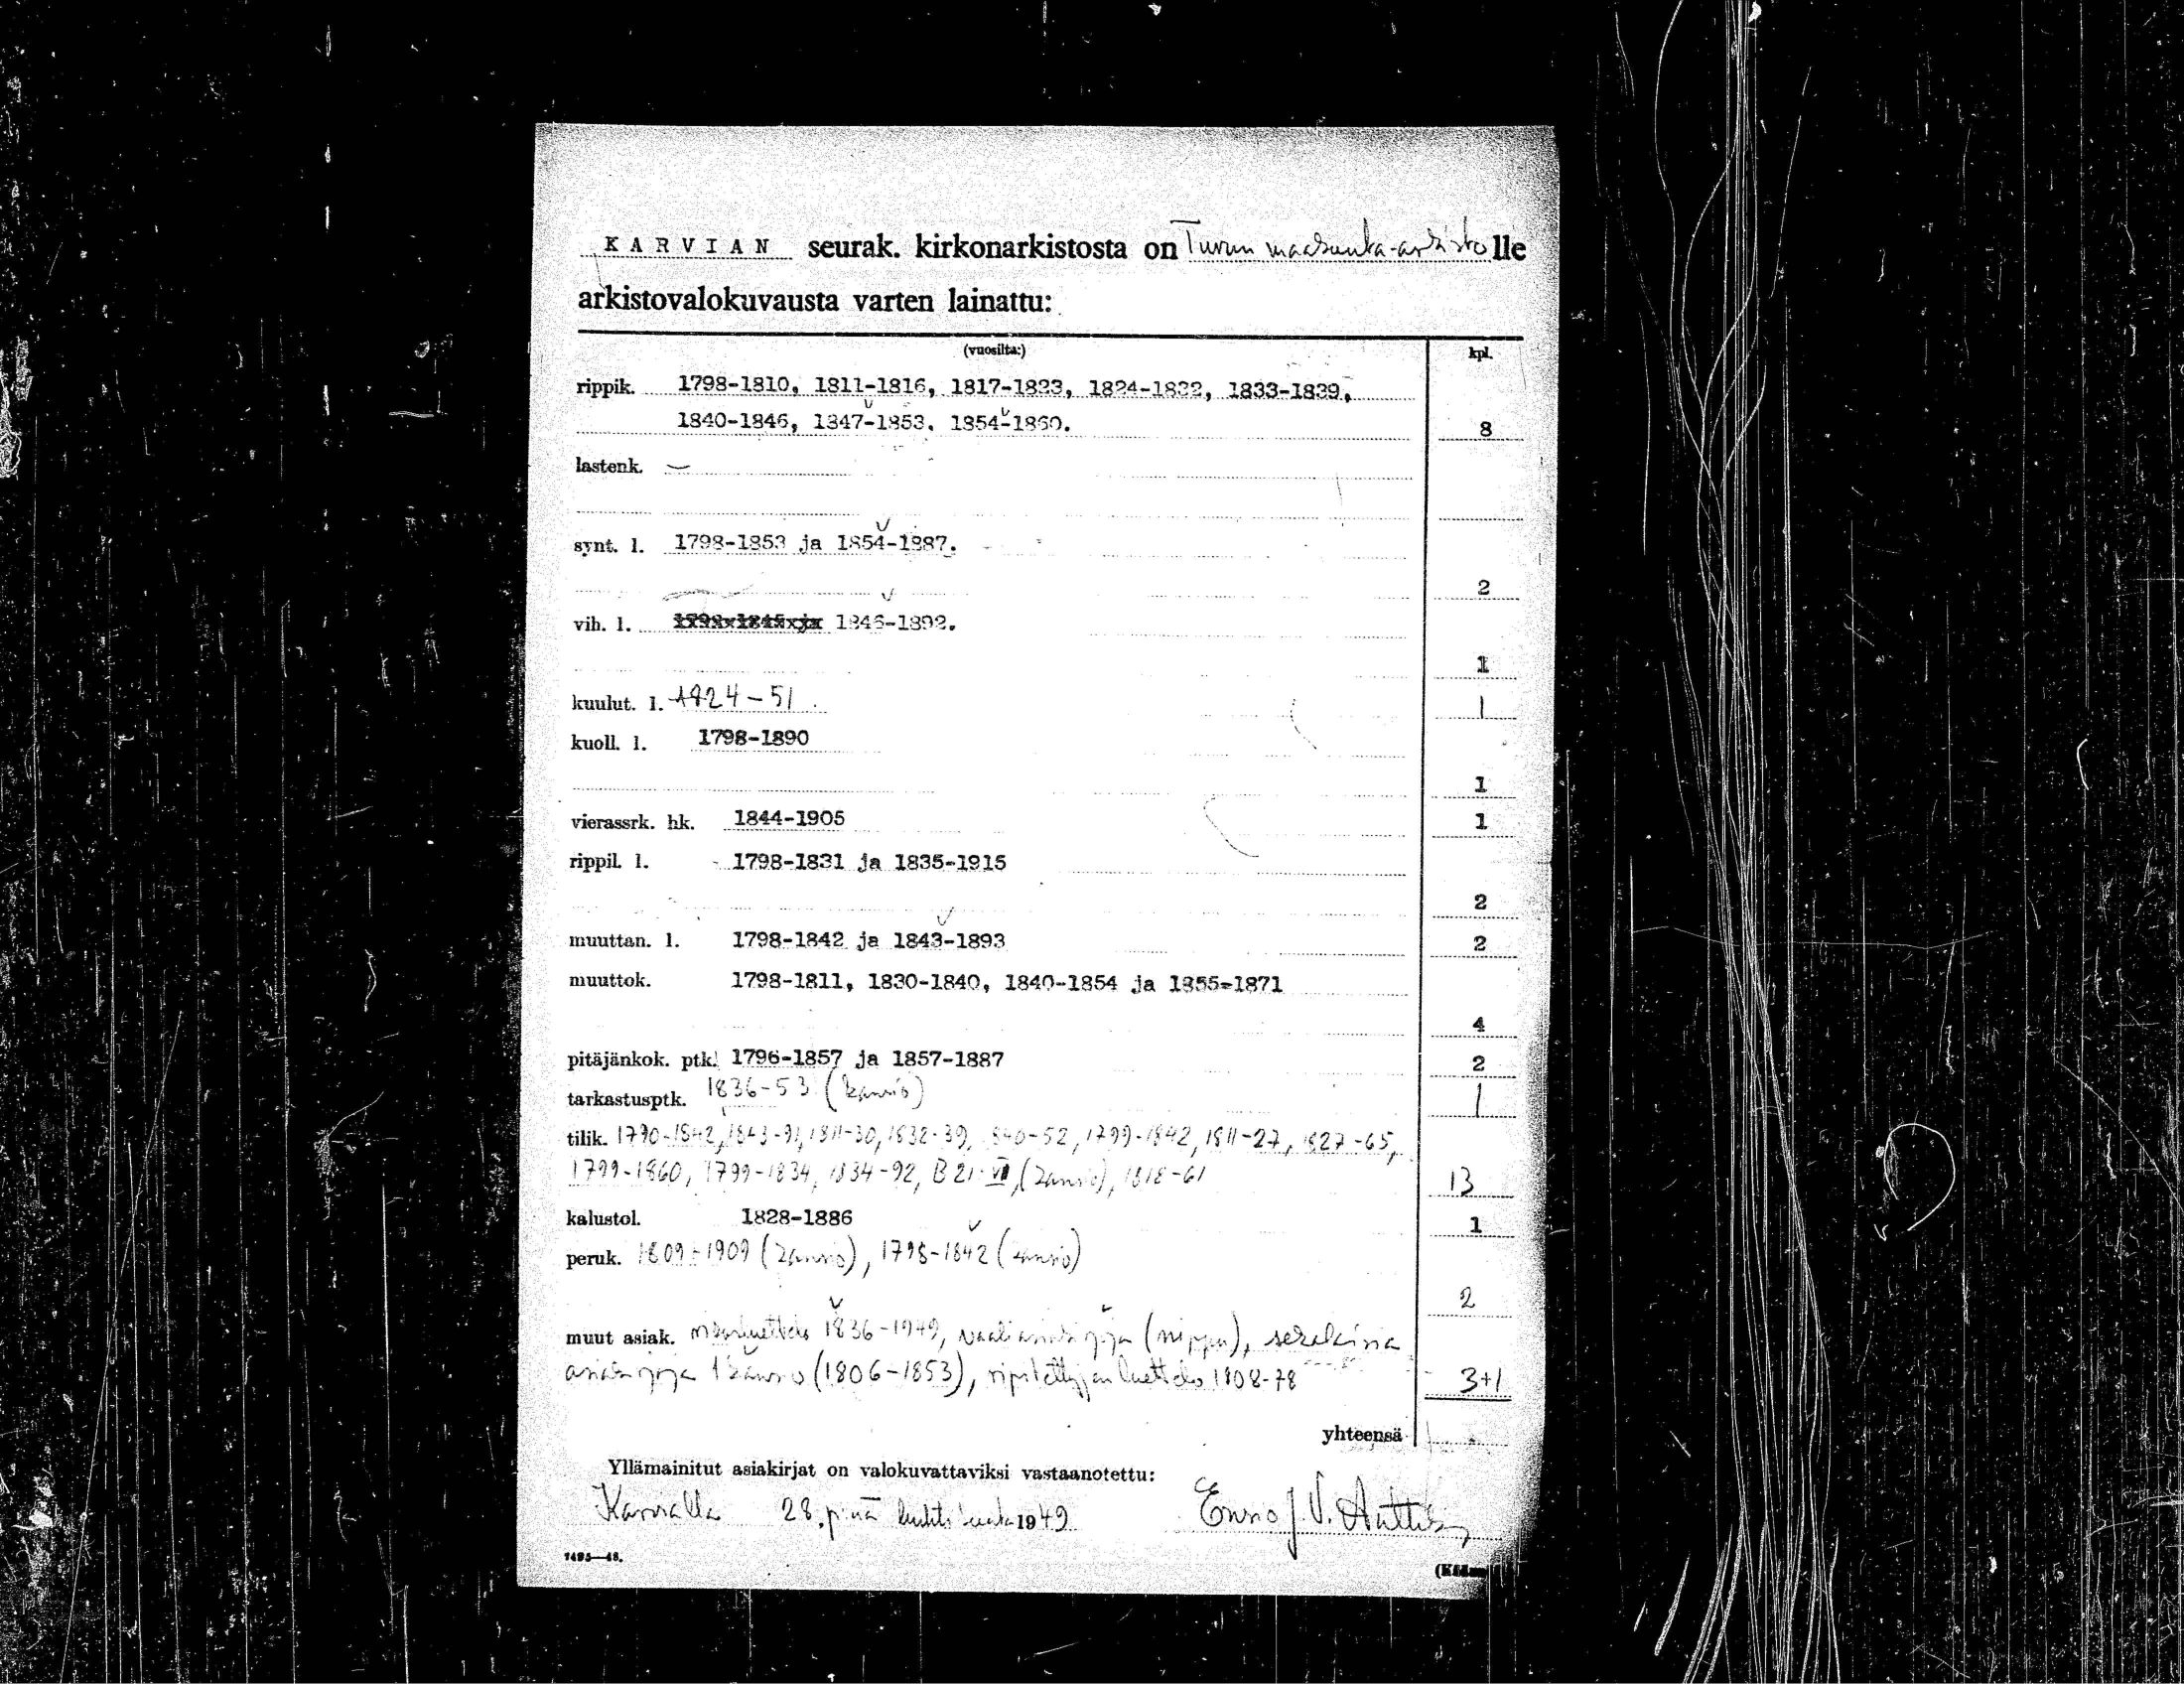 KARVIAN seurak. kirkonarkistosta on Turun maakunta-arkistolle
arkistovalokuvausta varten lainattu:
(vuosilta:) kpl.
rippik. 1798-1810, 1811-1816, 1817-1823, 1824-1832, 1833-1839,
1840-1846, 1847-1853. 1854-1860. 8
lastenk. —
synt. l. 1798-1853 ja 1854-1887.
2
vih. l. 1846-1892.
1
kuulut. l. 1824-51. 1
kuoll. l. 1798-1890
1
vierassrk. hk. 1844-1905 1
rippil. l. 1798-1831 ja 1835-1915
2
muuttan. l. 1798-1842 ja 1843-1893 2
muuttok. 1798-1811, 1830-1840, 1840-1854 ja 1855-1871
4
pitäjänkok. ptk. 1796-1857 ja 1857-1887 2
tarkastusptk. 1836-53 (kansio) 1
tilik. 1790-1842, 1843-91, 1811-30, 1832-39, 1840-52, 1799-1842, 1811-27, 1827-65,
1799-1860, 1799-1834, 1834-92, B 21: VII, (kansio), 1818-61 13
kalustol. 1828-1886 1
peruk. 1809-1909 (kansio), 1798-1842 (kansio)
2
muut asiak. 1836-1949, vaaliasiakirjoja (nippu), sekalaisia
asiakirjoja 1 kansio (1806-1853), ripitettyjen luettelo 1808-78 3+1
yhteensä
Yllämainitut asiakirjat on valokuvattaviksi vastaanotettu:
Karvialla 28. p:nä huhtikuuta 1949 Enno J. V. Anttila
7495—48.